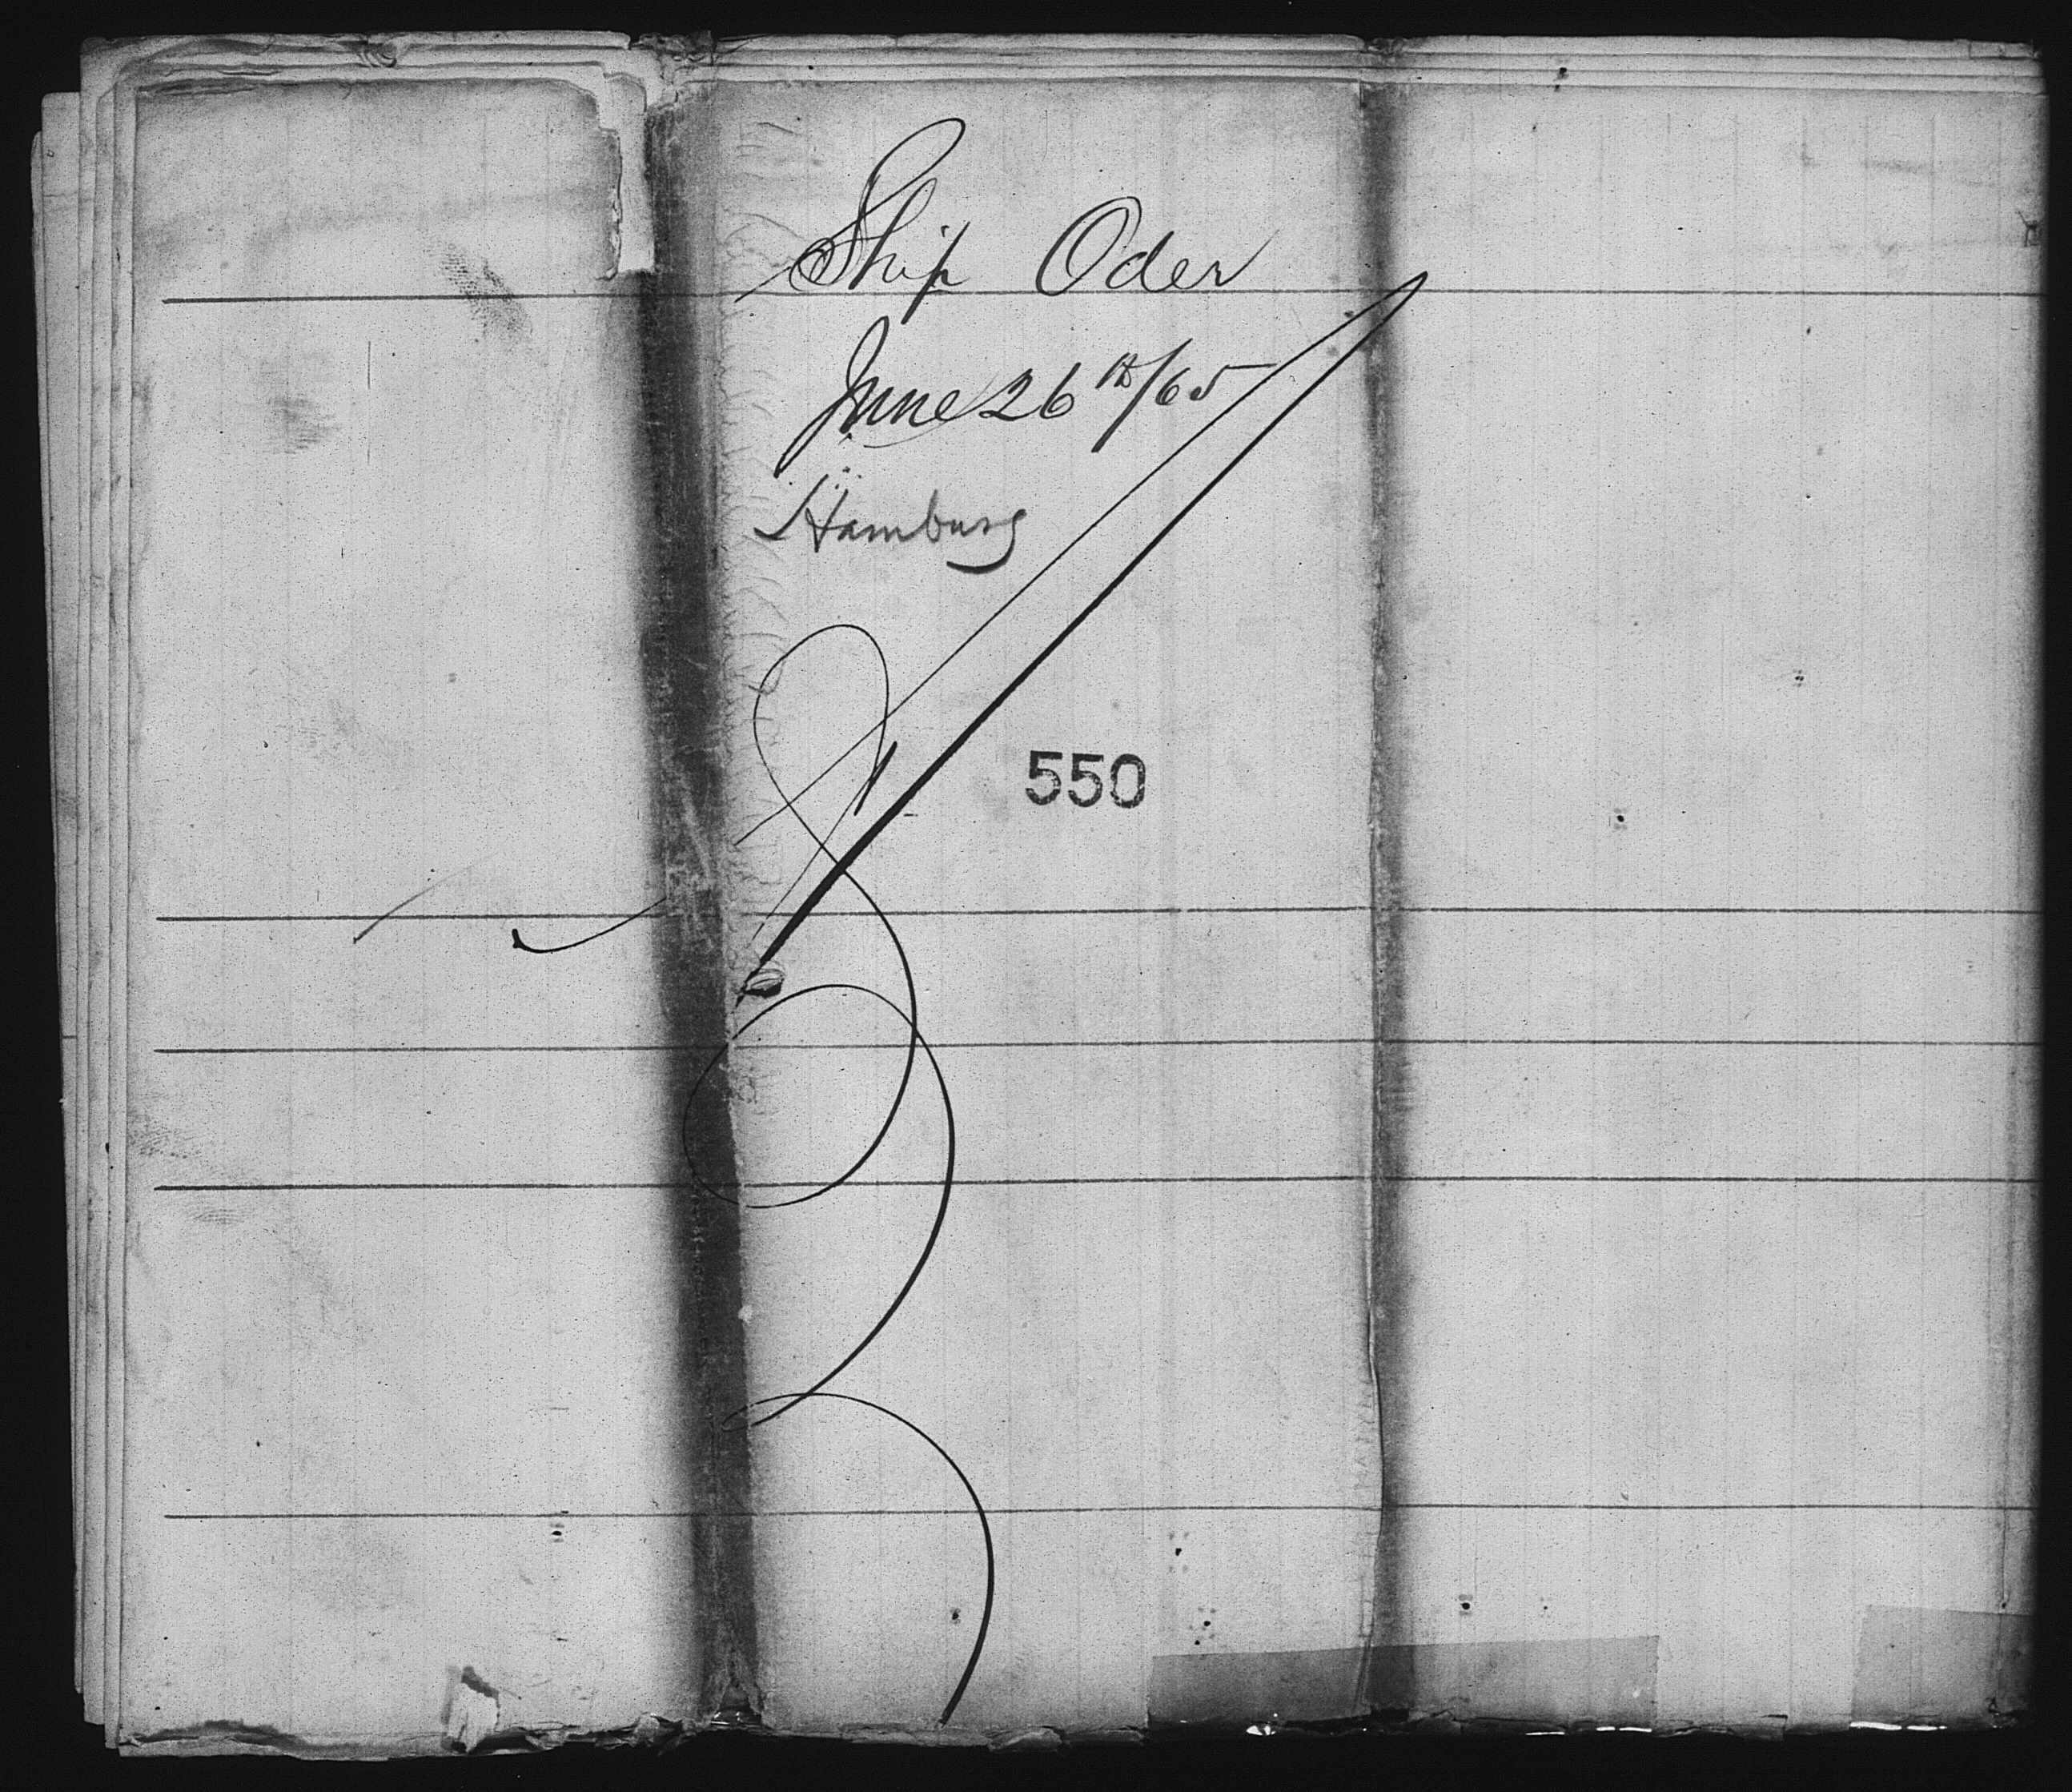 Ship Oder
June 26th/65
Hamburg
550